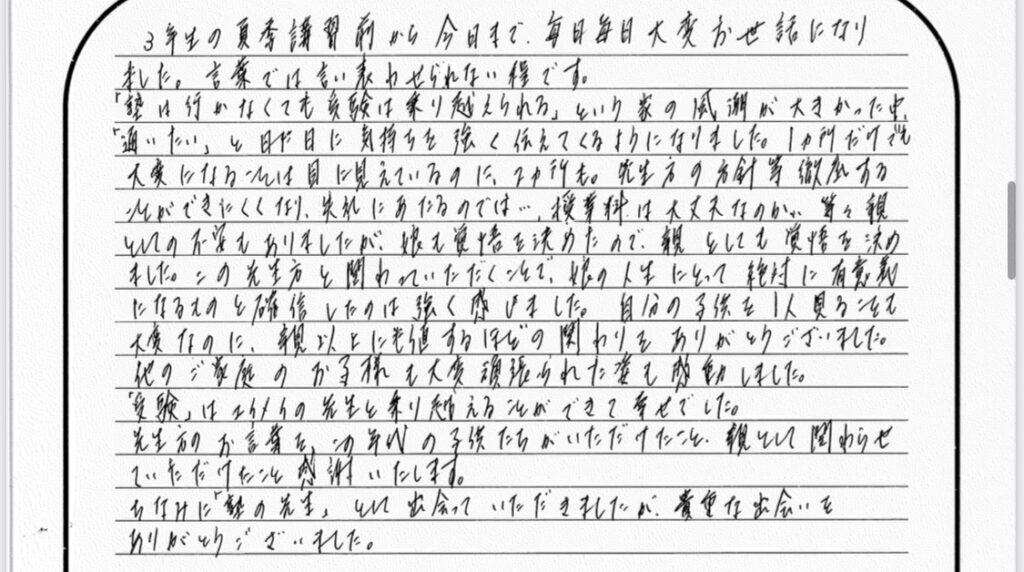 3年生の夏季講習前から今日まで、毎日毎日大変お世話になり
ました。言葉では言い表わせられない程です。
「塾は行かなくても受験は乗り越えられる」という家の風潮が大きかった中、
「通いたい」と日に日に気持ちを強く伝えてくるようになりました。1ヵ所だけでも
大変になることは目に見えているのに、2ヵ所も。先生方の方針等徹底する
ことができにくくなり、失礼にあたるのでは…、授業料は大丈夫なのか… 等々親
としての不安もありましたが、娘も覚悟を決めたので、親としても覚悟を決め
ました。この先生方と関わっていただくことで、娘の人生にとって絶対に有意義
になるものと確信したのは強く感じました。自分の子供を1人見ることも
大変なのに、親以上に匹敵するほどの関わりをありがとうございました。
他のご家庭のお子様も大変頑張られた姿も感動しました。
「受験」はユメイの先生と乗り越えることができて幸せでした。
先生方のお言葉を、この年代の子供たちがいただけたこと、親として関わらせ
ていただけたこと感謝いたします。
ちなみに「塾の先生」として出会っていただきましたが、貴重な出会いを
ありがとうございました。